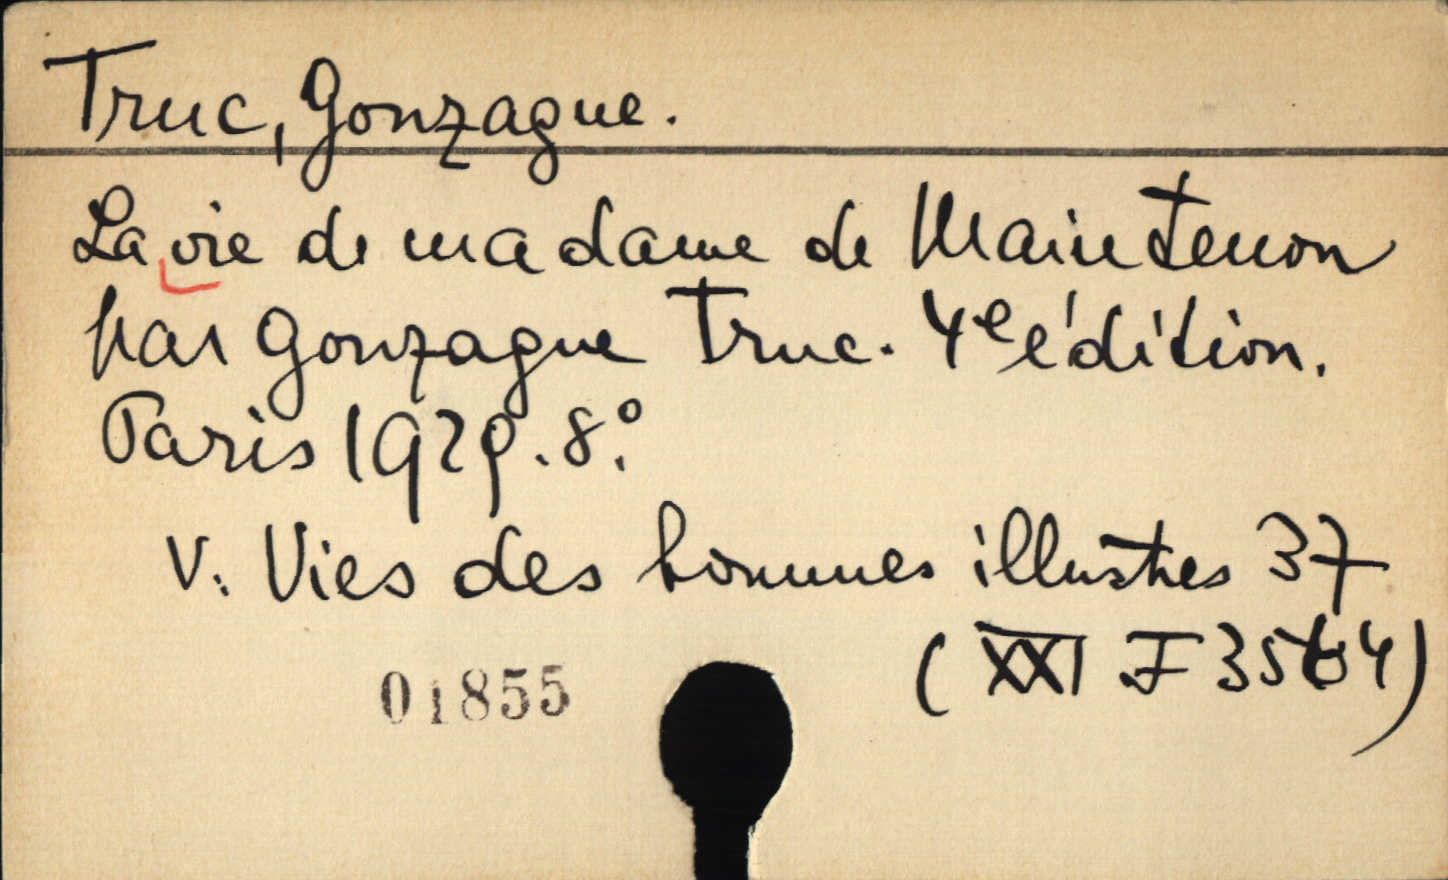 Truc, Gonzague.
La vie de madame de Maintenon
par Gonzague Truc. 4e édition.
Paris 1929. 8°.
V. Vies des hommes illustres 37
(XXI F 3564)
01855